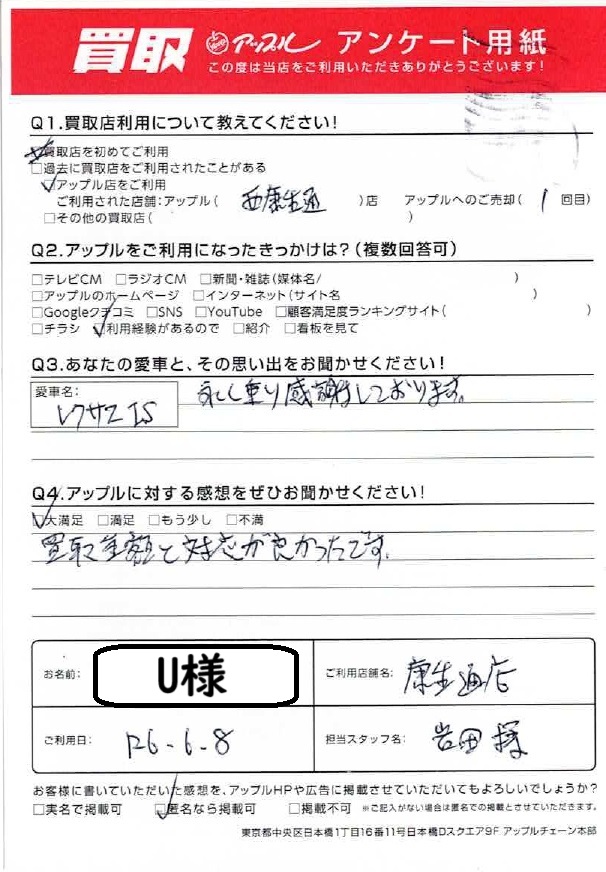 買取 アップル アンケート用紙
この度は当店をご利用いただきありがとうございます！
Q1.買取店利用について教えてください！
買取店を初めてご利用
□過去に買取店をご利用されたことがある
□アップル店をご利用
ご利用された店舗:アップル( 西康生通 )店 アップルへのご売却( 1 回目)
□その他の買取店( )
Q2.アップルをご利用になったきっかけは?(複数回答可)
□テレビCM □ラジオCM □新聞・雑誌(媒体名/ )
□アップルのホームページ □インターネット(サイト名 )
□Googleクチコミ □SNS □YouTube □顧客満足度ランキングサイト( )
□チラシ □利用経験があるので □紹介 □看板を見て
Q3.あなたの愛車と、その思い出をお聞かせください！
愛車名：
レクサス IS
永く乗り感謝しております。
Q4.アップルに対する感想をぜひお聞かせください！
□大満足 □満足 □もう少し □不満
買取金額と対応が良かったです。
お名前： U様 ご利用店舗名： 康生通店
ご利用日： R6-6-8 担当スタッフ名： 岩田 様
お客様に書いていただいた感想を、アップルHPや広告に掲載させていただいてもよろしいでしょうか？
□実名で掲載可 □匿名なら掲載可 □掲載不可 ※ご記入がない場合は匿名での掲載とさせていただきます。
東京都中央区日本橋1丁目16番11号日本橋Dスクエア9F アップルチェーン本部